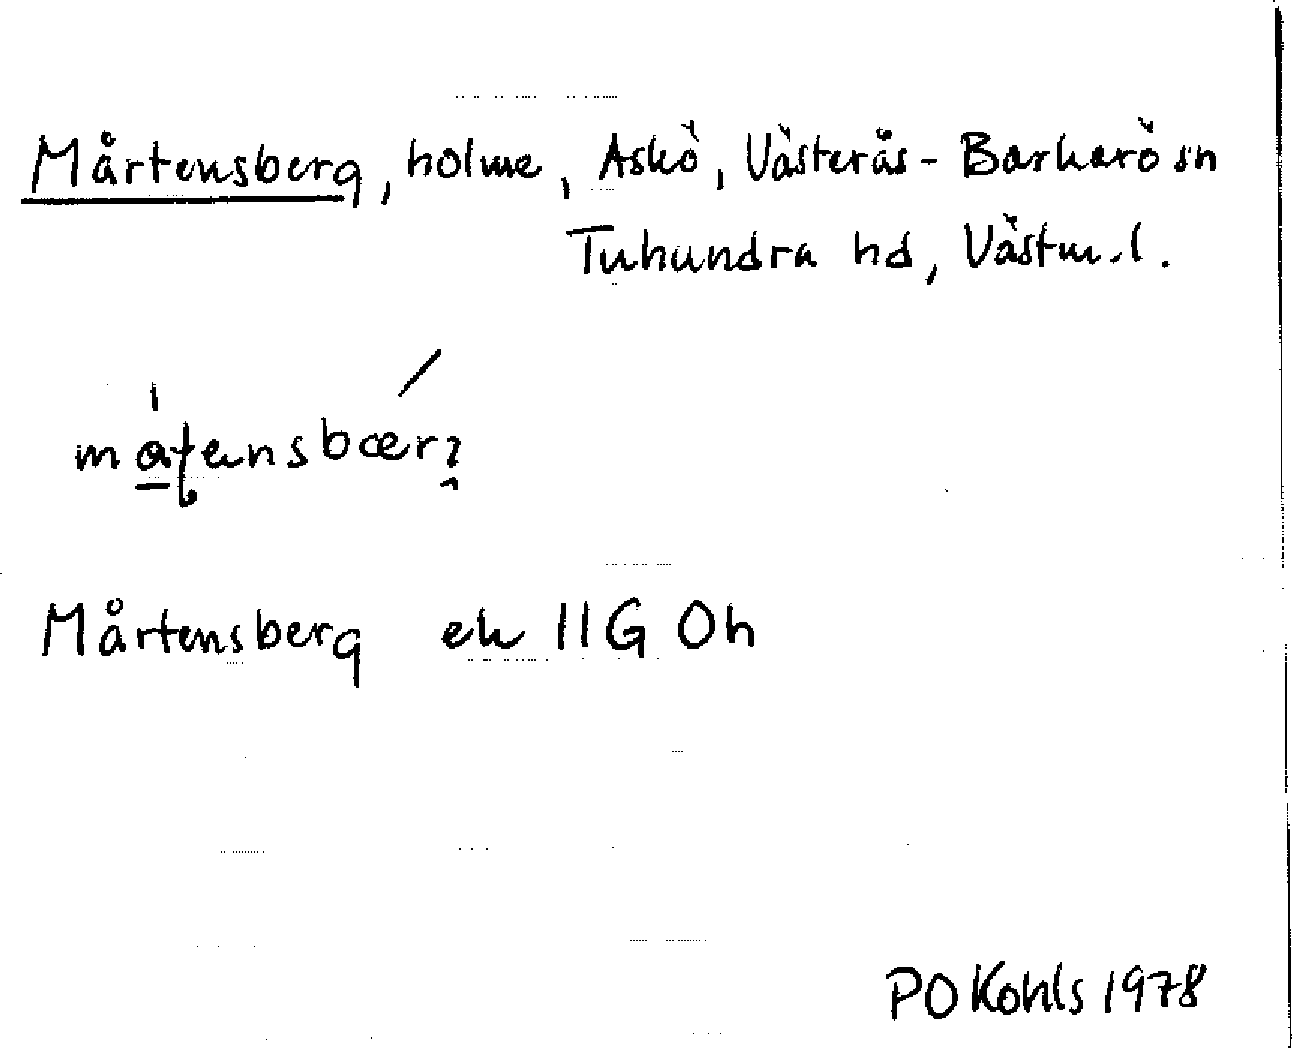 Mårtensberg, holme, Askö, Västerås-Barkarö sn
Tuhundra hd, Västm.l.
Mårtensberg ek 11G 0h
PO Kohls 1978